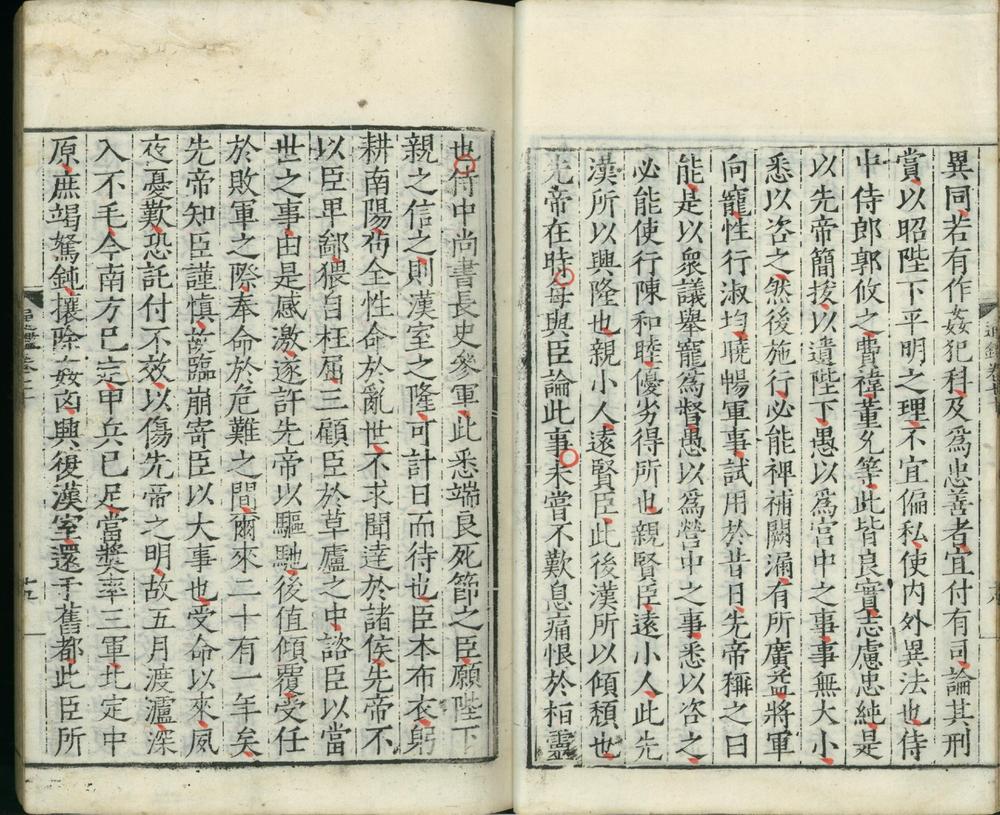 異同若有作姦犯科及為忠善者宜付有司論其刑
賞以昭陛下平明之理不宜偏私使内外異法也侍
中侍郎郭攸之費禕董允等此皆良實志慮忠純是
以先帝簡拔以遺陛下愚以為宮中之事事無大小
悉以咨之然後施行必能裨補闕漏有所廣益將軍
向寵性行淑均曉暢軍事試用於昔日先帝稱之曰
能是以衆議舉寵為督愚以為營中之事悉以咨之
必能使行陳和睦優劣得所也親賢臣遠小人此先
漢所以興隆也親小人遠賢臣此後漢所以傾頹也
先帝在時每與臣論此事未嘗不歎息痛恨於桓靈
也侍中尚書長史參軍此悉端良死節之臣願陛下
親之信之則漢室之隆可計日而待也臣本布衣躬
耕南陽苟全性命於亂世不求聞達於諸侯先帝不
以臣卑鄙猥自枉屈三顧臣於草廬之中諮臣以當
世之事由是感激遂許先帝以驅馳後值傾覆受任
於敗軍之際奉命於危難之間爾來二十有一年矣
先帝知臣謹慎故臨崩寄臣以大事也受命以來夙
夜憂歎恐託付不效以傷先帝之明故五月渡瀘深
入不毛今南方已定甲兵已足當獎率三軍北定中
原庶竭駑鈍攘除姦凶興復漢室還于舊都此臣所